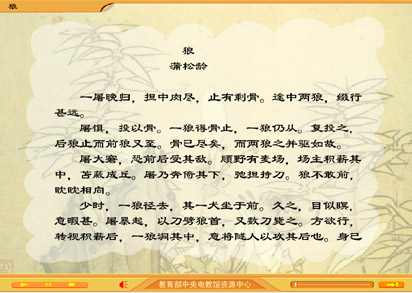 狼
狼
蒲松龄
一屠晚归，担中肉尽，止有剩骨。途中两狼，缀行
甚远。
屠惧，投以骨。一狼得骨止，一狼仍从。复投之，
后狼止而前狼又至。骨已尽矣，而两狼之并驱如故。
屠大窘，恐前后受其敌。顾野有麦场，场主积薪其
中，苫蔽成丘。屠乃奔倚其下，弛担持刀。狼不敢前，
眈眈相向。
少时，一狼径去，其一犬坐于前。久之，目似瞑，
意暇甚。屠暴起，以刀劈狼首，又数刀毙之。方欲行，
转视积薪后，一狼洞其中，意将隧人以攻其后也。身已
教育部中央电教馆资源中心